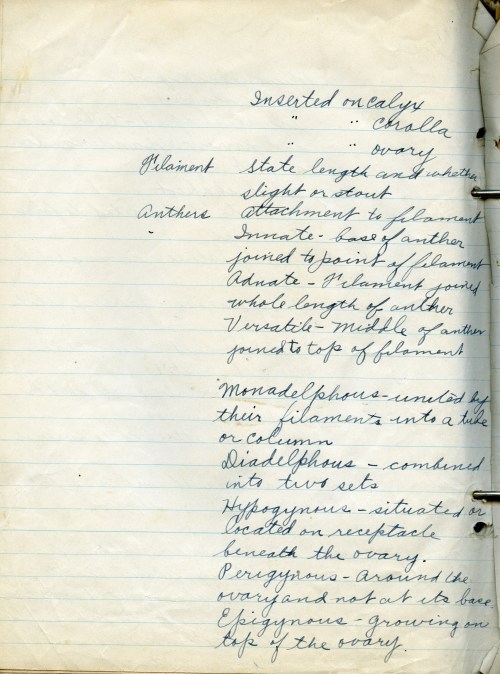 Inserted on calyx
" " corolla
" " ovary
Filament State length and whether
slight or stout
Anthers attachment to filament
Innate - base of anther
joined to point of filament
Adnate - Filament joined
whole length of anther
Versatile - Middle of anther
joined to top of filament
Monadelphous - united by
their filaments into a tube
or column
Diadelphous - combined
into two sets
Hypogynous - situated or
located on receptacle
beneath the ovary.
Perigynous - Around the
ovary and not at its base
Epigynous - growing on
top of the ovary.